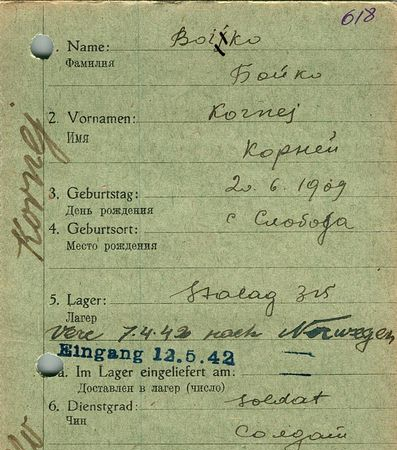 618
1. Name: Boiko
Фамилия
Бойко
2. Vornamen: Kornej
Имя
Корней
3. Geburtstag: 20. 6. 1909
День рождения
4. Geburtsort: с Слобода
Место рождения
5. Lager: Stalag 315
Лагер
7.4.42 nach Norwegen
Eingang 12.5.42
a. Im Lager eingeliefert am:
Доставлен в лагер (число)
6. Dienstgrad: Soldat
Чин
Солдат
Kornej